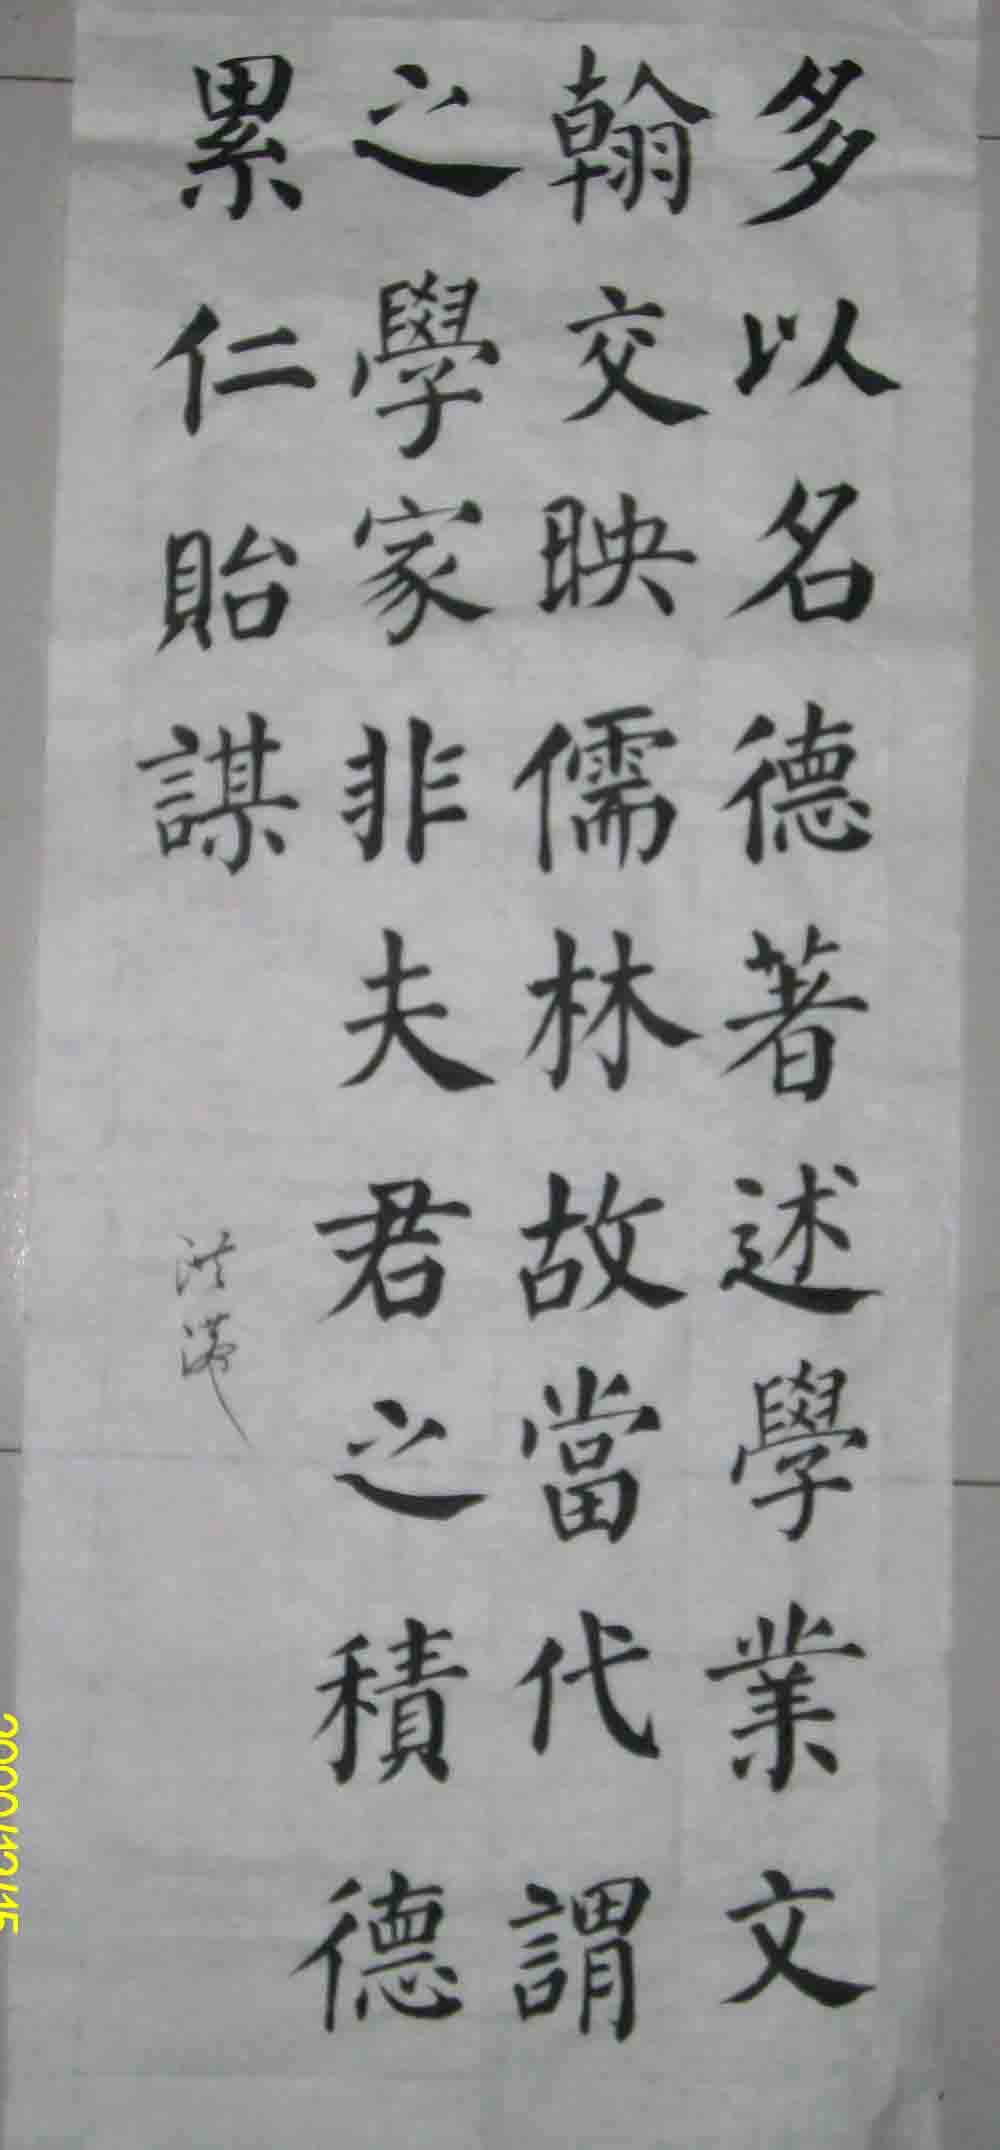 多以名德著述學業文
翰交映儒林故當代謂
之學家非夫君之積德
累仁貽謀